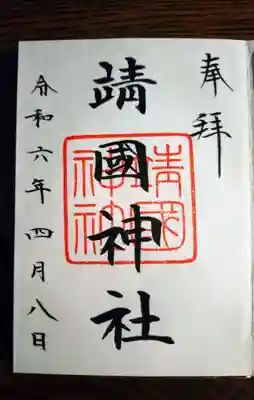 奉拝
靖國神社
靖國神社
令和六年四月八日